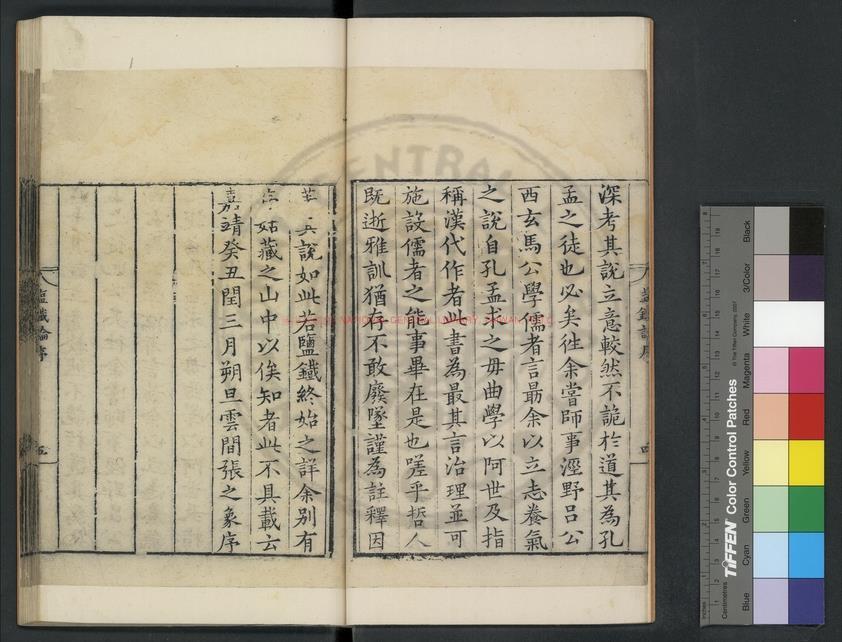 深考其說立意較然不詭於道其為孔
孟之徒也必矣徃余嘗師事涇野呂公
西玄馬公學儒者言最余以立志養氣
之說自孔孟求之毋曲學以阿世及指
稱漢代作者此書為最其言治理並可
施設儒者之能事畢在是也嗟乎哲人
既逝雅訓猶存不敢廢墜謹為註釋因
其說如此若鹽鐵終始之詳余別有
姑藏之山中以俟知者此不具載云
嘉靖癸丑閏三月朔旦雲間張之象序
鹽鐵論序
五
鹽鐵論序
四
NATIONAL CENTRAL LIBRARY
CENTRAL
TIFFEN Color Control Patches
© The Tiffen Company, 2007
Centimetres
Inches
Blue
Cyan
Green
Yellow
Red
Magenta
White
3/Color
Black